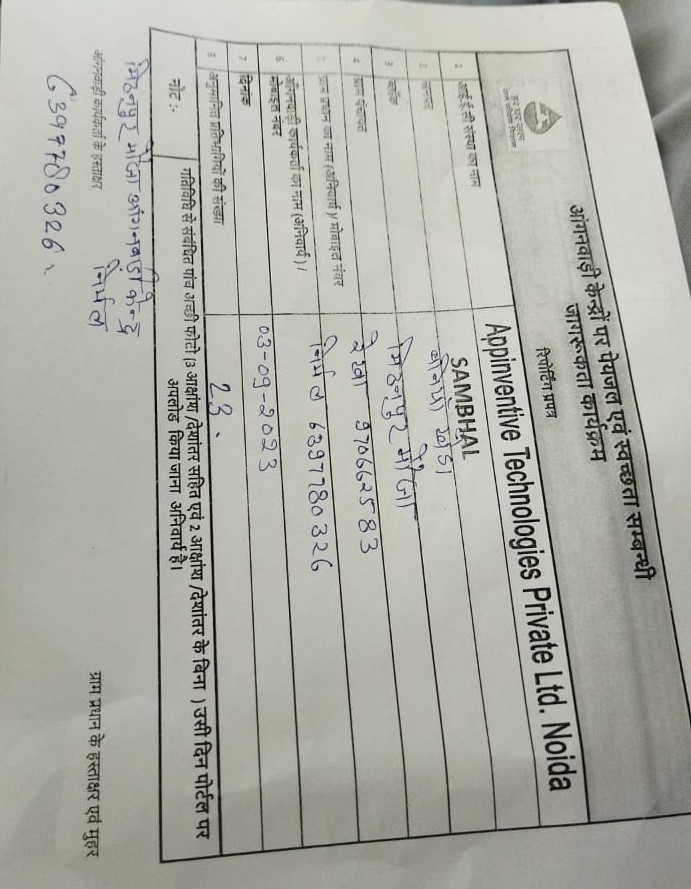 आंगनवाड़ी केन्द्रों पर पेयजल एवं स्वच्छता सम्बन्धी
जागरूकता कार्यक्रम
रिपोर्टिंग प्रपत्र
हर घर जल
जल जीवन मिशन
1 आई.ई.सी संस्था का नाम Appinventive Technologies Private Ltd. Noida
2 जनपद SAMBHAL
3 ब्लॉक खेडा
4 ग्राम पंचायत मिठनपुर मौजा
5 ग्राम प्रधान का नाम (अनिवार्य )/ मोबाइल नंबर रेखा 970662583
6 आँगनवाड़ी कार्यकर्ता का नाम (अनिवार्य ) / मोबाइल नंबर निर्मल 6397780326
7 दिनांक 03-09-2023
8 अनुमानित प्रतिभागियों की संख्या 23.
नोट :- गतिविधि से संबंधित पांच अच्छी फोटो (3 आक्षांश /देशांतर सहित एवं 2 आक्षांश /देशांतर के बिना ) उसी दिन पोर्टल पर
अपलोड किया जाना अनिवार्य है।
मिठनपुर मौजा आंगनवाड़ी केन्द्र
निर्मल
आंगनवाड़ी कार्यकर्ता के हस्ताक्षर
ग्राम प्रधान के हस्ताक्षर एवं मुहर
6397780326